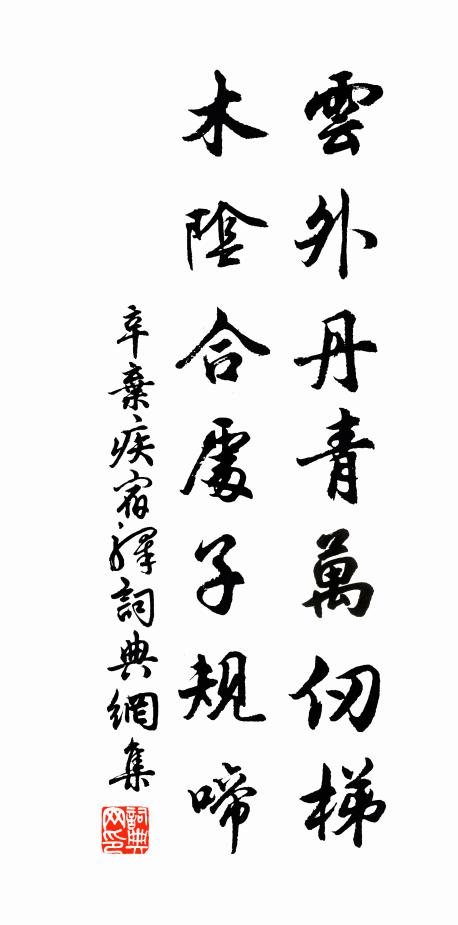 雲外丹青萬仞梯
木陰合處子規啼
辛棄疾宿驛詞典網集
詞典網印